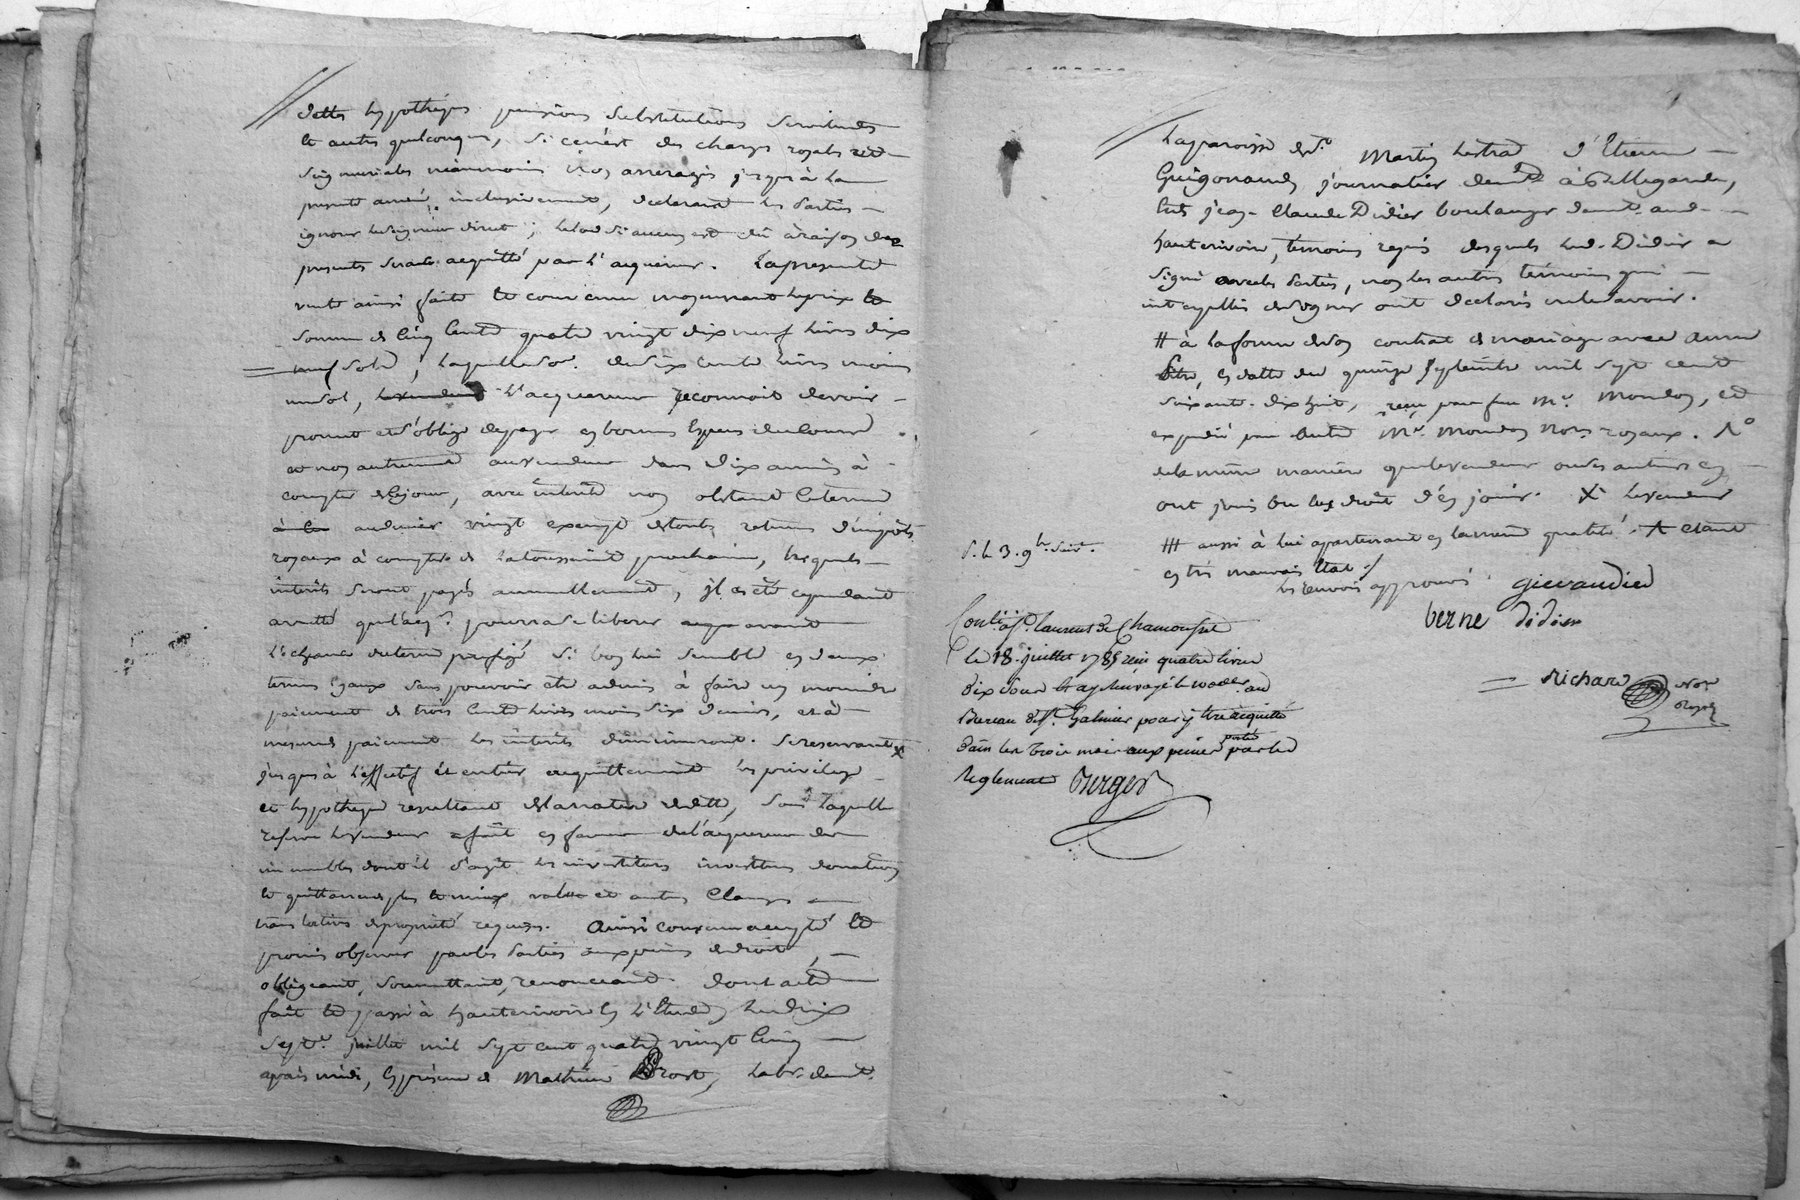 dettes hypotheques pensions substitutions servitudes
et autres quelconques, si ce n'est des charges royales et
seigneuriales neanmoins sans arrerages jusqu'à la
presente année inclusivement, declarant les parties
ignorer le seigneur direct; le lod si aucun est dû à raison des
presentes sera acquitté par l'acquereur. La presente
vente ainsi faite et convenue moyennant le prix et
somme de cinq cents quatre vingt dix neuf livres dix
neuf sols, laquelle som. de six cents livres moins
un sol, l'acquereur reconnoit devoir
promet et s'oblige de payer en bonnes especes de cours
et non autrement au vendeur dans dix années à
compter de ce jour, avec interêt non obstant le terme
au denier vingt exempt de toutes retenues d'impôts
royaux à compter de la toussaint prochaine, lesquels
interêts seront payés annuellement, il a été cependant
arrêté que l'acq.r pourra se liberer avant
l'echeance du terme prefigé si bon lui semble en deux
termes egaux sans pouvoir etre admis à faire un moindre
paiement de trois cents livres moins six deniers, et à
mesure de paiement les interêts diminueront. Se reservant
jusqu'à l'effectif et entier acquittement les privilege
et hypotheque resultant de la nature de dette, sous laquelle
reserve le vendeur a fait en faveur de l'acquereur des
immeubles dont il s'agit les investitures donation
et quittances de plus et mieux value et autres clauses
translatives de propriété requises. Ainsi convenu accepté et
promis observer par les parties aux peines de droit,
obligeant, soumettant, renonceant dont acte
fait et passé à hauterivoire en l'Etude, le dix
sept.e juillet mil sept cent quatre vingt cinq
après midi, en presence de Mathieu Brost, lab.r demt.
la paroisse de St. Martin Lestrad d'Etienne
Guigonaud, journalier demt. à Bellegarde,
et de jean-Claude Didier boulanger demt. aud.
hauterivoire, temoins requis desquels led. Didier a
signé avec les parties, non les autres temoins qui
interpellés de signer ont declarés ne le savoir.
# à la forme de son contrat de mariage avec anne
en datte du quinze septembre mil sept cent
soixante-dix huit, reçu par feu Mr. Mondon, et
expedié par autre Mr. Mondon Not.re royaux.
de la même maniere que le vendeur ou ses auteurs en
ont joui ou eu droit d'en jouir. X le vendeur
# aussi à lui appartenant en la même qualité. etant
en très mauvais etat./
les renvois approuvés. gievaudied
berne didier
richard Not.
Royal
s. le 3. 9br. suiv.
Contlé à St. laurent de Chamousset
le 18 juillet 1785 reçu quatre livres
dix sous
Bureau de St. Galmier pour y être acquitté
dans les trois mois aux peines portées par les
Reglements Berger